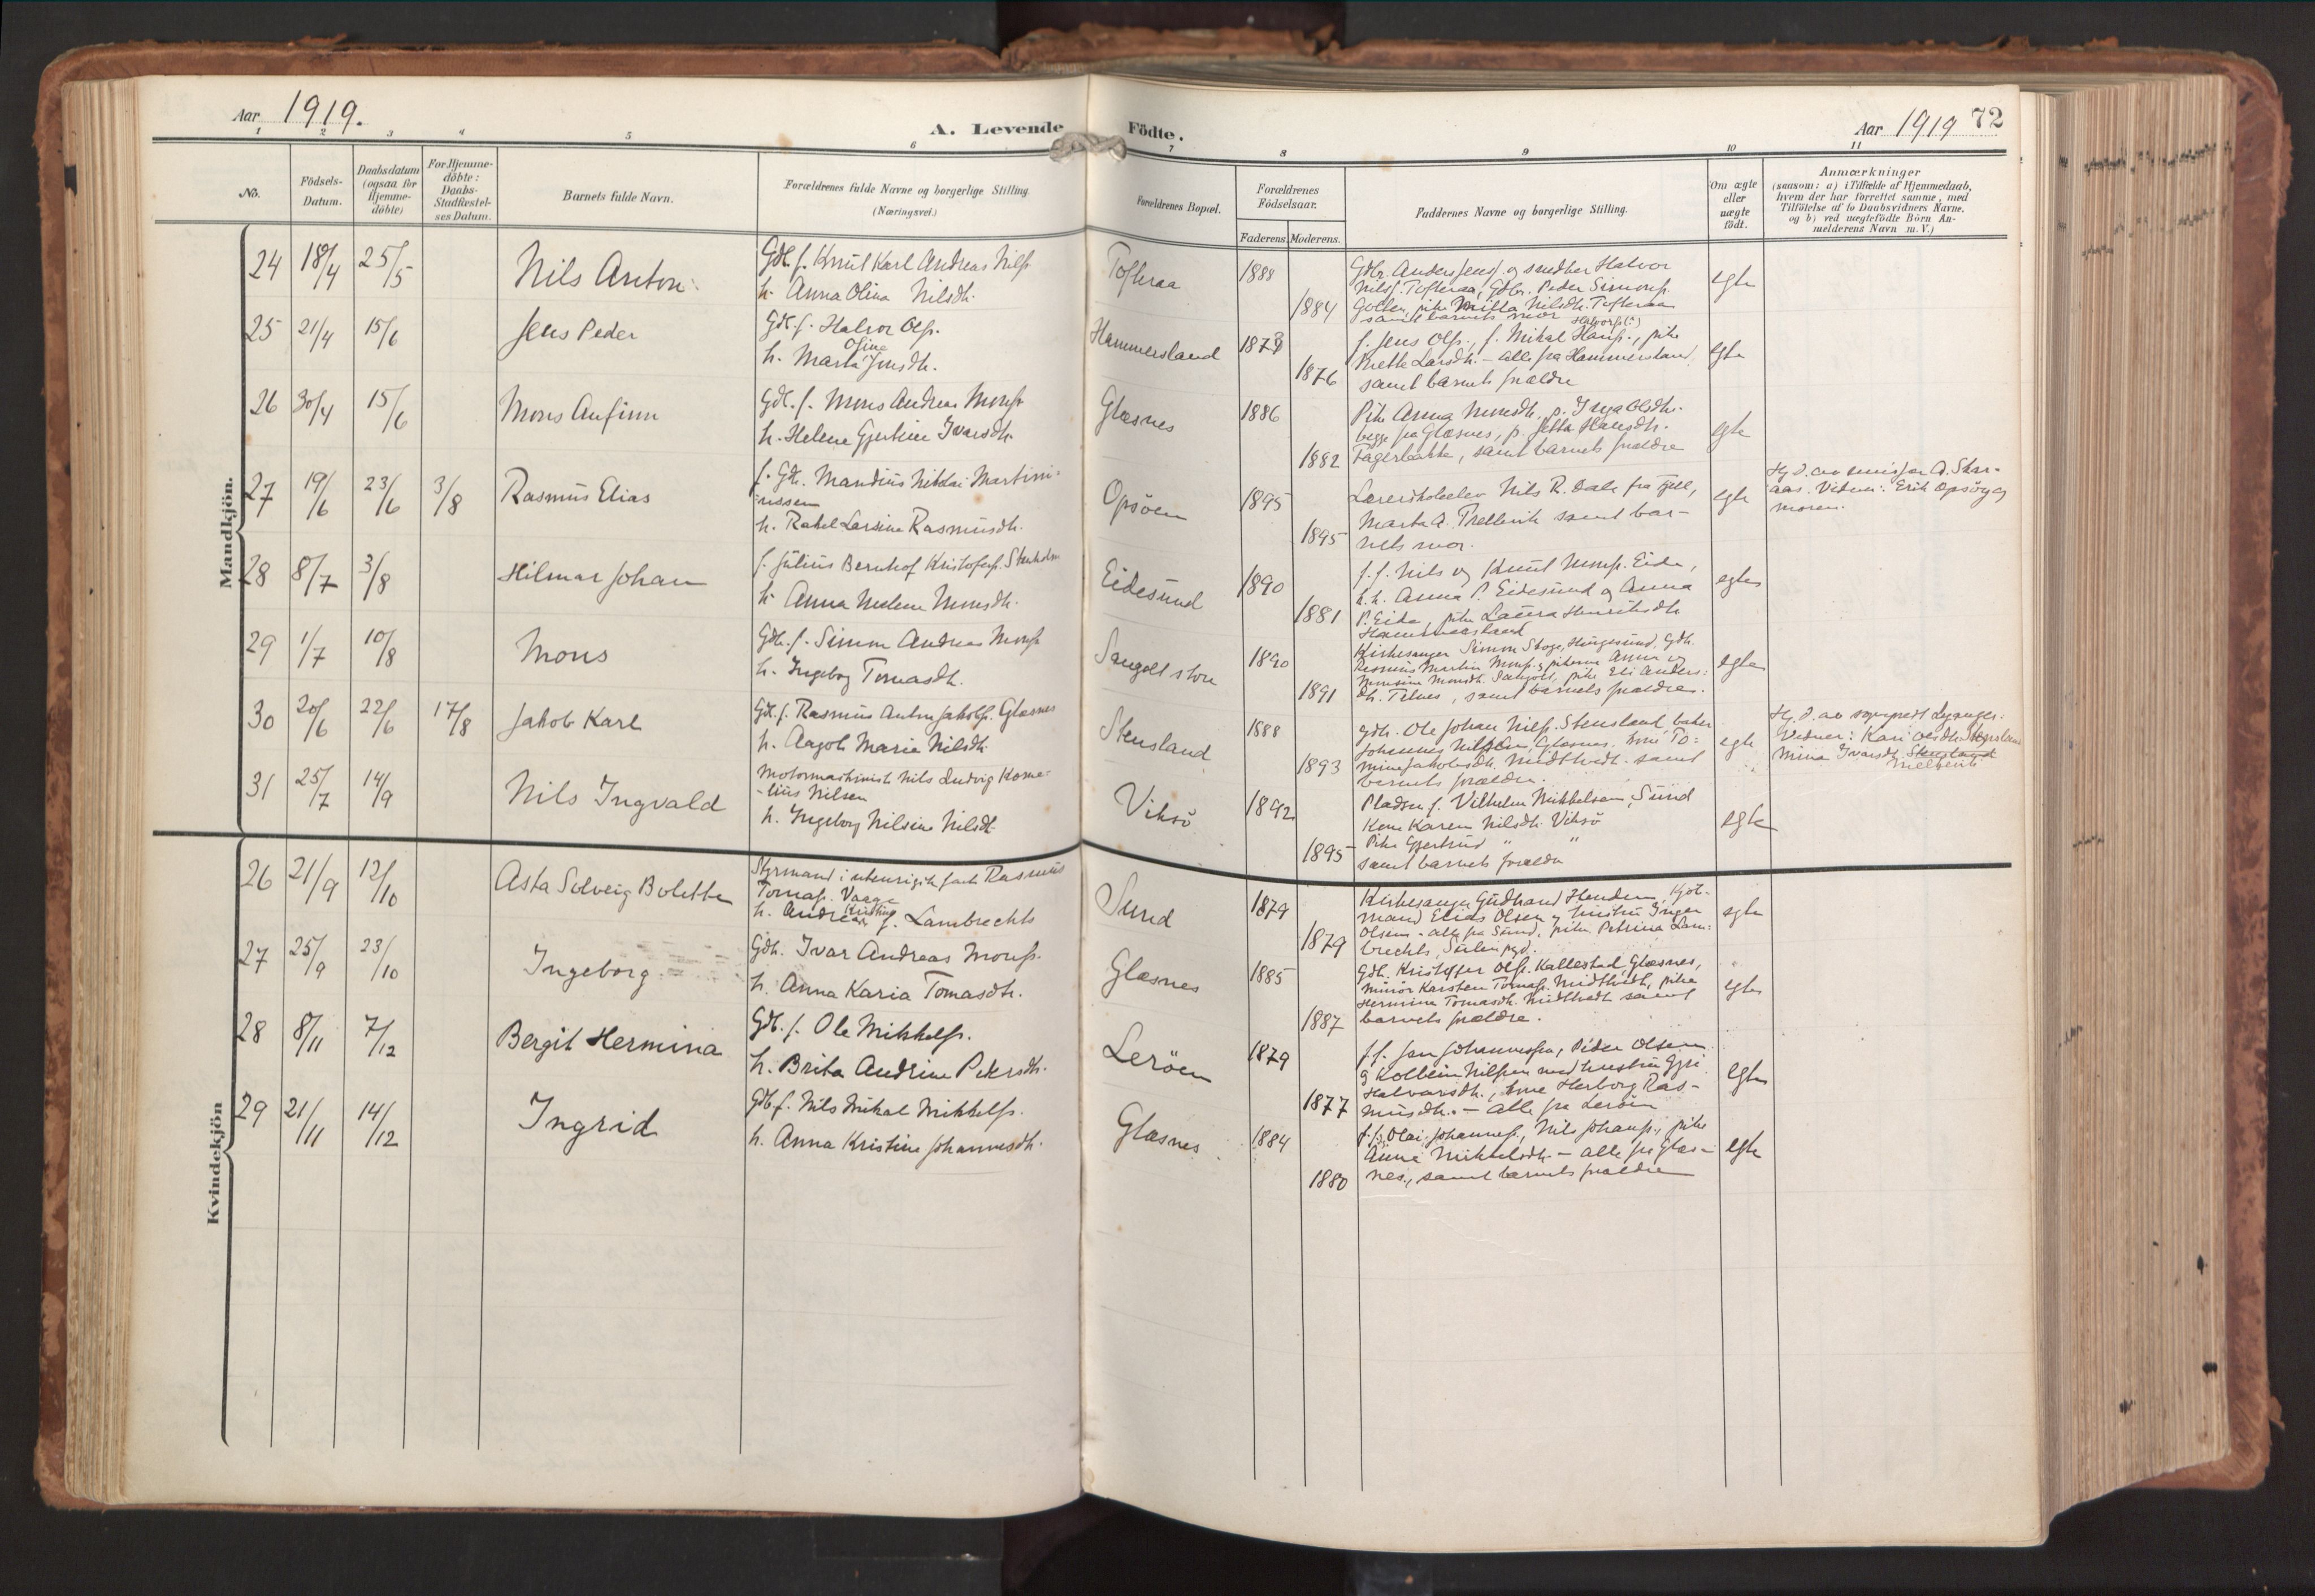 Aar 1919.
A. Levende Födte.
Aar 1919 72
1 2 3 4 5 6 7 8 9 10 11
No.
Födsels-
Datum.
Daabsdatum
(ogsaa for
Hjemme-
döbte)
For Hjemme-
döbte:
Daabs-
Stadfæstel-
ses Datum.
Barnets fulde Navn.
Forældrenes fulde Navne og borgerlige Stilling.
(Næringsvei.)
Forældrenes Bopæl.
Forældrenes
Födselsaar.
Faderens. Moderens.
Faddernes Navne og borgerlige Stilling.
Om ægte
eller
uægte
födt.
Anmærkninger
(saasom: a) i Tilfælde af Hjemmedaab,
hvem der har forrettet samme, med
Tilföielse af to Daabsvidners Navne.
og b) ved uægtefödte Börn An-
melderens Navn m. V.)
Mandkjön.
24 18/4 25/5 Nils Anton
Gdb. f. Knut Karl Andreas Nilss.
h. Anna Olina Nilsdtr.
Tofteraa 1888 1884
Gdbr. Anders Jenss. og snedker Halvor
Nilss. Tofteraa, Gdbr. Peder Simonss.
Golten, pike Milla Nilsdtr. Tofteraa
samt barnets mor
egte
25 21/4 15/6 Jens Peder
Gdb. f. Halvor Ols.
h. Marta Oline Jensdtr.
Hammersland 1878 1876
f. Jens Ols., f. Mikal Hans., pike
Mette Larsdtr. - alle fra Hammersland,
samt barnets forældre
egte
26 30/4 15/6 Mons Anfinn
Gdb. f. Mons Andreas Monss.
h. Helene Gjertine Ivarsdtr.
Glæsnes 1886 1882
Pike Anna Monsdtr., p. Inga Olsdtr.
begge fra Glæsnes, p. Jetta Hansdtr.
Fagerbakke, samt barnets forældre
egte
27 19/6 23/6 3/8 Rasmus Elias
f. Gdb. Mandius Nikolai Martini-
ussen
h. Rakel Larsine Rasmusdtr.
Opsöen 1895 1895
Lærerskoleelev Nils R. Dale fra Fjell,
Marta A. Trellevik samt bar-
nets mor.
egte
Hj. d. av emissær A. Skar-
aas. Vidner: Erik Opsöy og
moren.
28 8/7 3/8 Hilmar Johan
f. Julius Bernhof Kristofers. Stenholm
h. Anna Malene Monsdtr.
Eidesund 1890 1881
f.f. Nils og Knut Monss. Eide,
h.h. Anna P. Eidesund og Anna
P. Eide, pike Laura Henriksdtr.
Hammersland
egte
29 1/7 10/8 Mons
Gdb. f. Simon Andreas Monss.
h. Ingeborg Tomasdtr.
Sangolt store 1890 1891
Kirkesanger Simon Skoge, Gdb.
Rasmus Martin Monss. Anna og
Monsine Monsdtr. Sangolt, pike Eli Anders-
dtr. Telnes, samt barnets forældre.
egte
30 20/6 22/6 17/8 Jakob Karl
Gdb. f. Rasmus Anton Jakobs. Glæsnes
h. Aagot Marie Nilsdtr.
Stensland 1888 1893
Gdb. Ole Johan Nilss. Stensland,
Johannes Nilssen, Glæsnes. kone To-
mine Jakobsdtr. Midttvedt samt
barnets forældre.
egte
Hj. d. av sogneprest Lyanger.
Vidner: Kari Olsdtr.
Mina Ivarsdtr. Stensland
31 25/7 14/9 Nils Ingvald
Motormaskinist Nils Ludvig Korne-
-lius Nilsen
h. Ingeborg Nilsine Nilsdt.
Viksö 1892 1895
Pladsm. f. Vilhelm Mikkelsen, Sund
Kone Karen Nilsdtr. Viksö
Pike Gjertrud " "
samt barnets forældre
egte
Kvindekjön
26 21/9 12/10 Asta Solveig Bolette
Styrmand i utenrigsk fart Rasmus
Tomass. Vaage
h. Andrea Kristine f. Lambrechts
Sund 1879 1879
Kirkesanger Gudbrand Henden, Kjöb-
mand Elias Olsen og hustru Inger
Olsen - alle fra Sund, pike Petrina Lam-
brechts,
egte
27 25/9 23/10 Ingeborg
Gdb. Ivar Andreas Monss.
h. Anna Karia Tomasdtr.
Glæsnes 1885 1887
Gdb. Kristoffer Ols. Kallestad, Glæsnes,
Minör Karsten Tomass. Midttvedt, pike
Hermine Tomasdtr. Midttvedt samt
barnets forældre.
egte
28 8/11 7/12 Bergit Hermina
Gdb. f. Ole Mikkels.
h. Brita Andrine Petersdtr.
Leröen 1879 1877
f.f. Jan Johannessen, Peder Olsen
og Kolbein Nilssen med hustru Gjri
Halvorsdtr., kone Herborg Ras-
musdtr. - alle fra Leröen
egte
29 21/11 14/12 Ingrid
Gdb. f. Nils Mikal Mikkels.
h. Anna Kristine Johannesdtr.
Glæsnes 1884 1880
f.f. Olai Johanness., Nils Johans., pike
Anna Mikkelsdtr. - alle fra Glæs-
nes, samt barnets forældre
egte